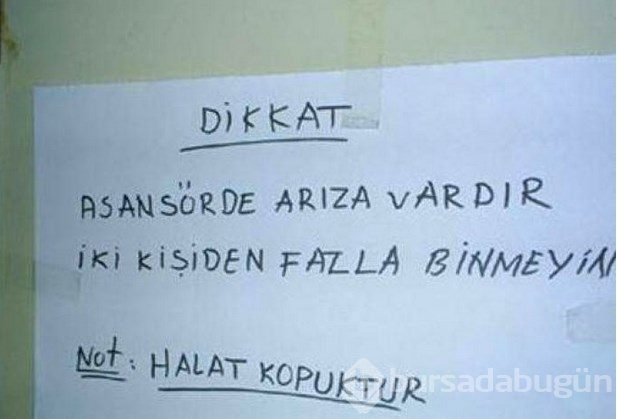 DİKKAT
ASANSÖRDE ARIZA VARDIR
İKİ KİŞİDEN FAZLA BİNMEYİN
Not: HALAT KOPUKTUR
bursadabugün